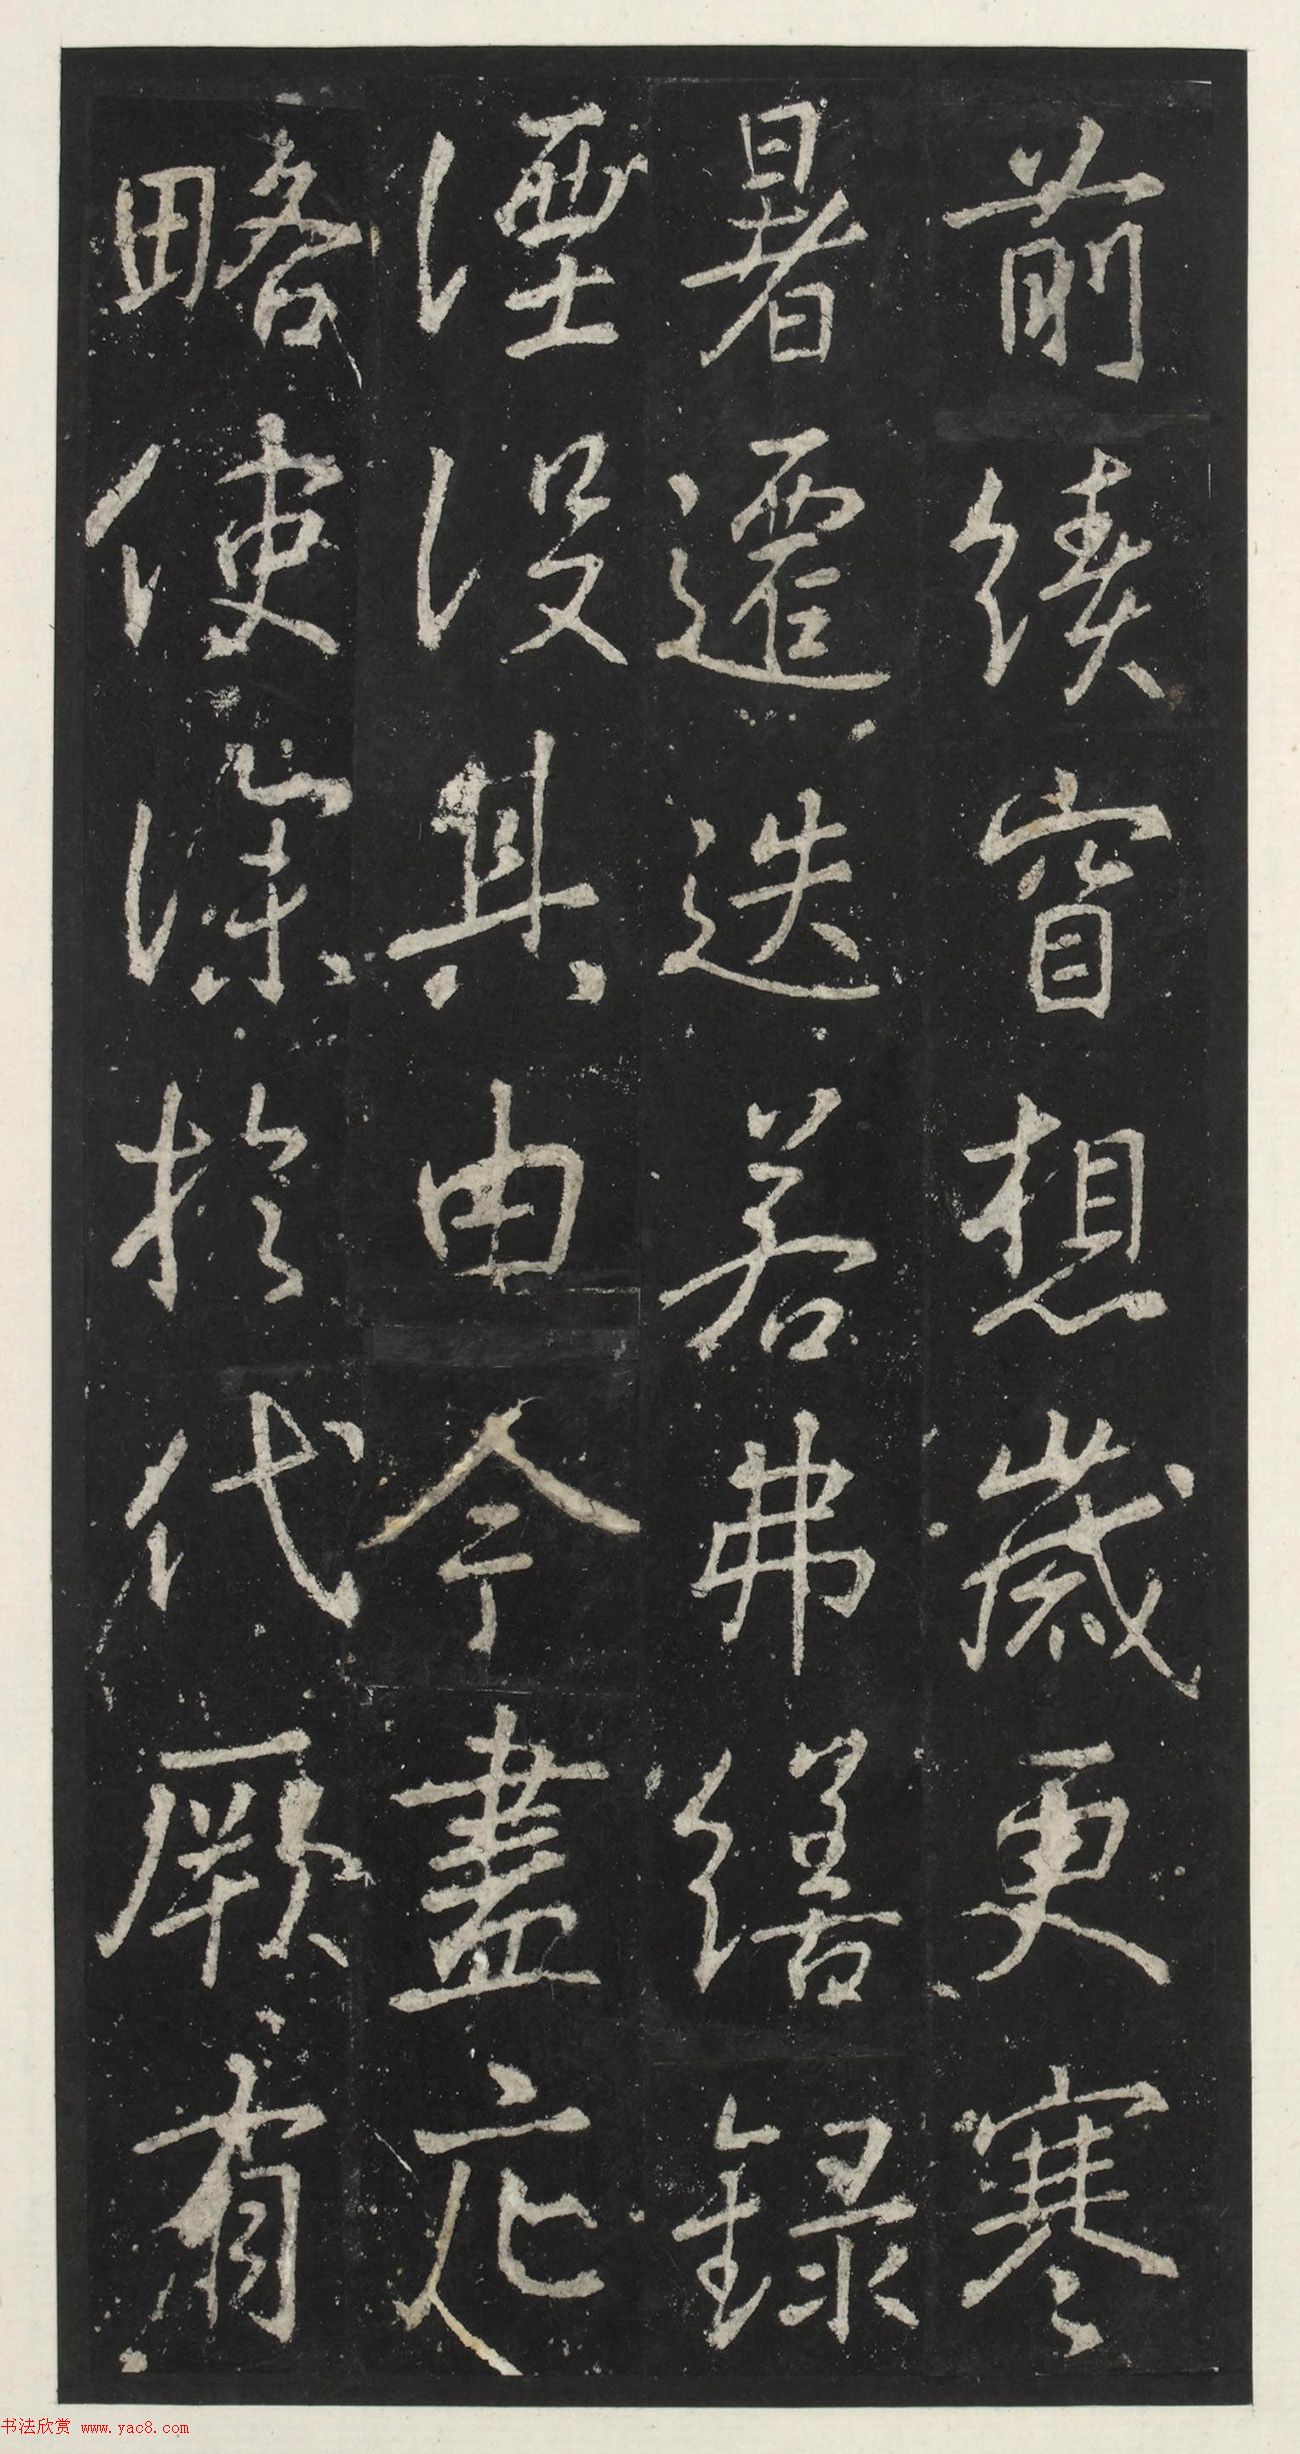 前續窅想歲更寒
暑遷迭若弗繕錄
湮沒其由今盡疕
略使深於代厥有
书法欣赏 www.yac8.com